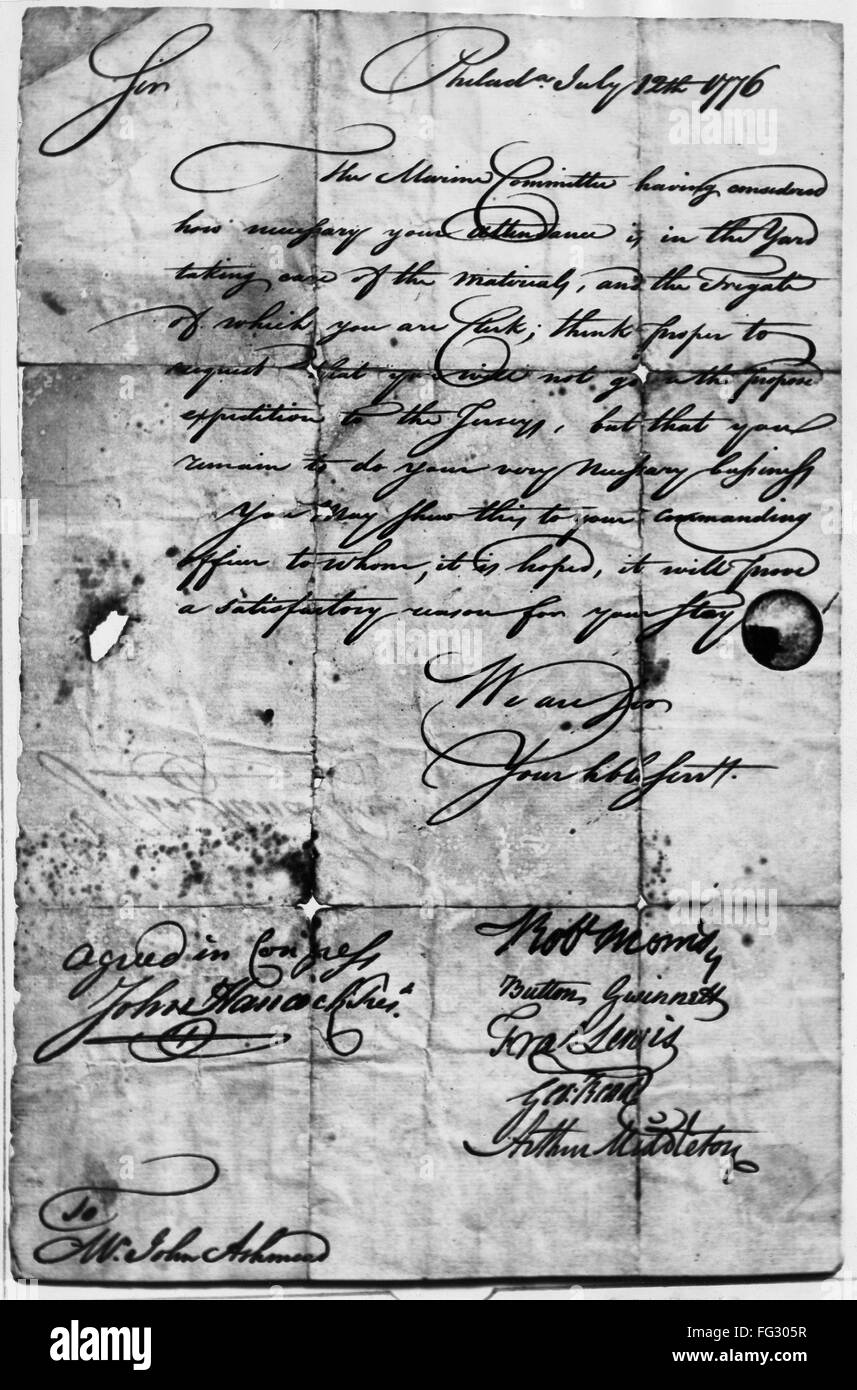 Sir Philada. July 12th 1776
The Marine Committee having considered
how necessary your attendance is in the Yard
taking care of the materials, and the Frigate
of which you are Clerk; think proper to
request that you will not go on the propos'd
expedition to the Jerseys, but that you
remain to do your very necessary bussiness
You may shew this to your commanding
officer to whom, it is hoped, it will prove
a satisfactory reason for your stay
We are Sir
Your hble Servt.
agreed in Congress
John Hancock Prest.
Robt Morris
Button Gwinnett
Fras. Lewis
Geo: Read
Arthur Middleton
To
Mr. John Ashmead
alamy
a
a
alamy stock photo
FG305R
www.alamy.com